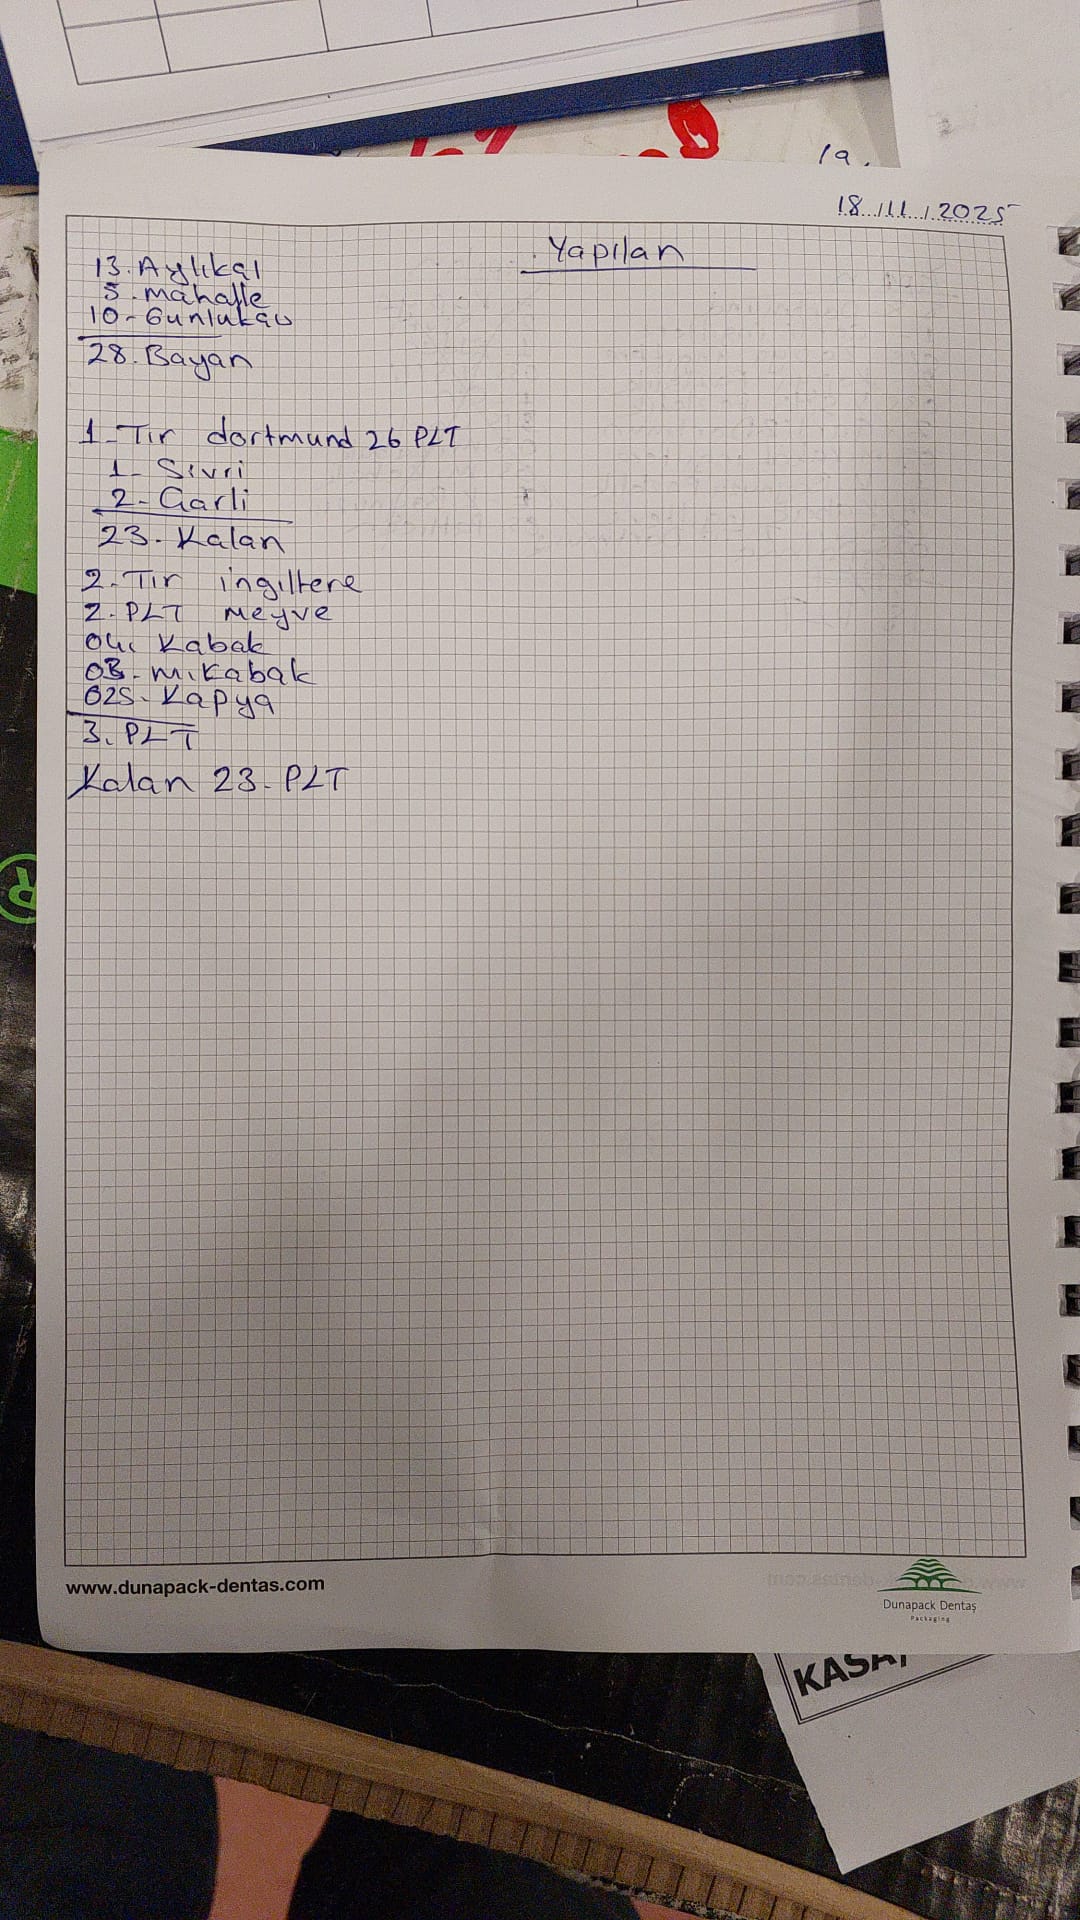 19.
18/11/2025
Yapılan
13. Aylıkçı
5. mahalle
10- Gunlukçu
28. Bayan
1-Tır dortmund 26 PLT
1- Sivri
2- Garli
23. Kalan
2. Tır ingiltere
2. PLT meyve
Kabak
m. Kabak
025- Kapya
3. PLT
Kalan 23. PLT
www.dunapack-dentas.com
Dunapack Dentaş
Packaging